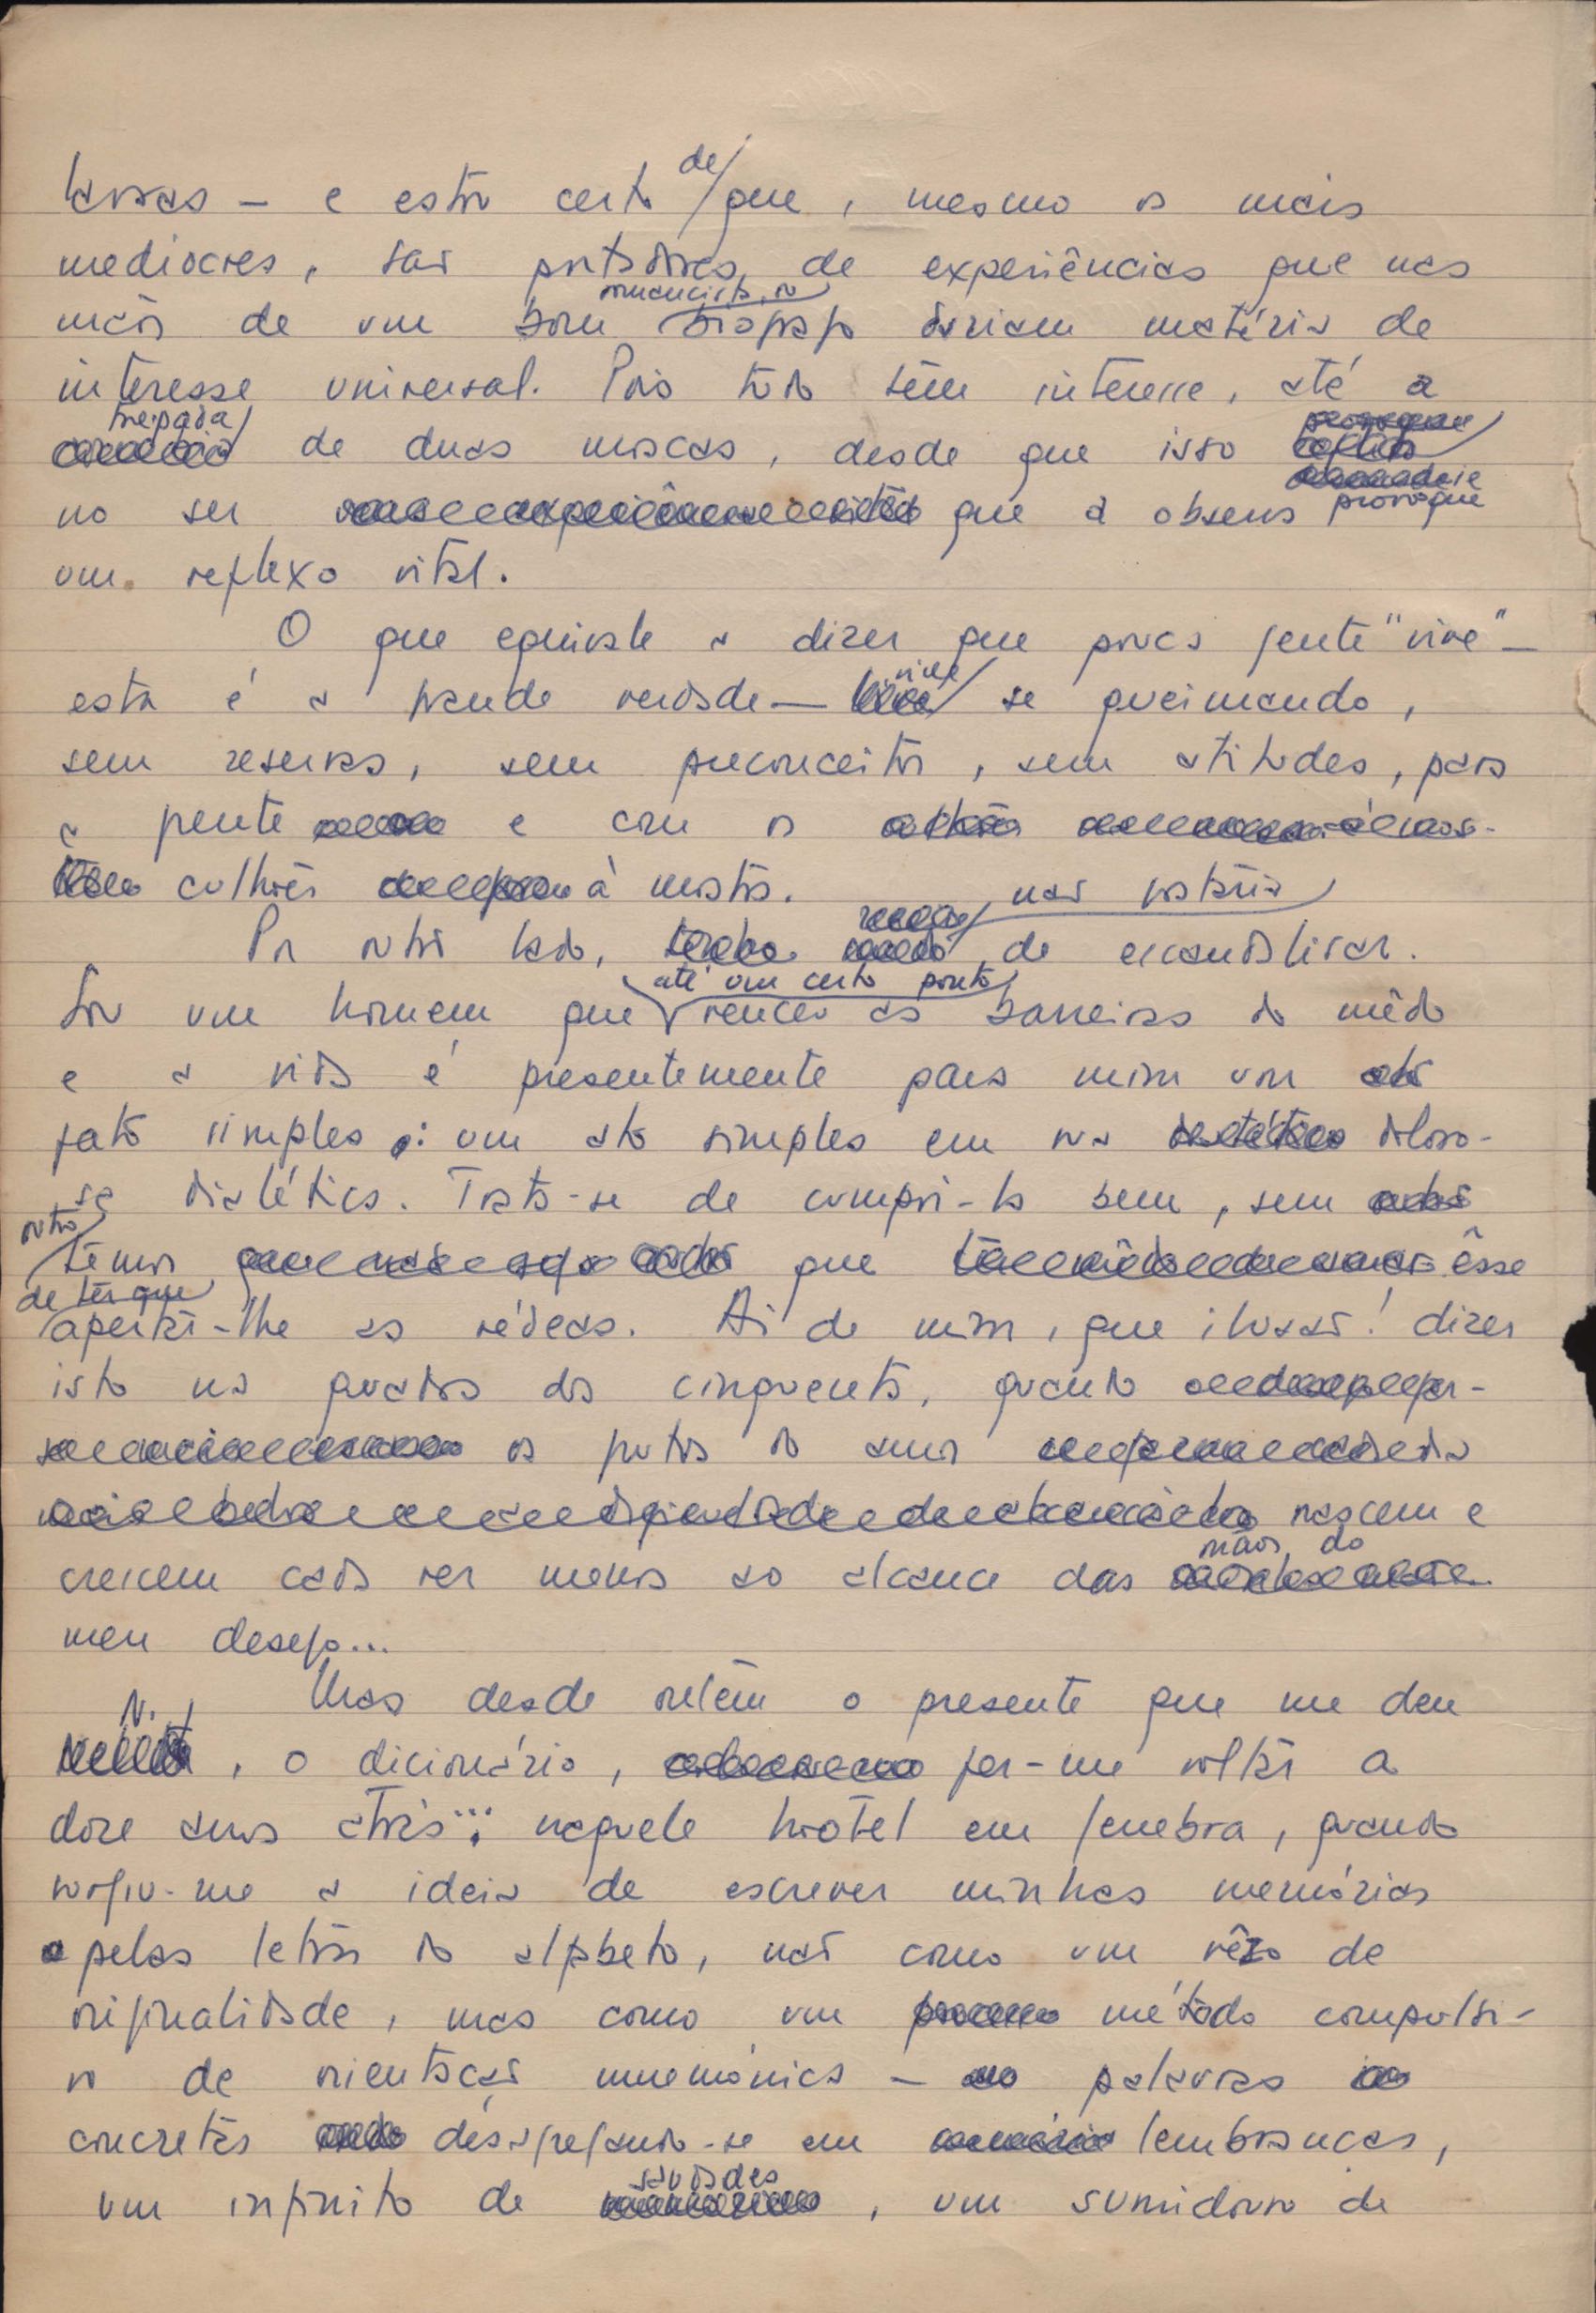 lavras — e estou certo de que, mesmo os mais
medíocres, são portadores de experiências que nas
mãos de um bom romancista ou
biógrafo dariam matéria de
interesse universal. Pois tudo tem interesse, até a
trepada de duas moscas, desde que isso
no ser que a observa provoque
um reflexo vital.
O que equivale a dizer que pouca gente "vive" —
esta é a grande verdade — vive se queimando,
sem reservas, sem preconceitos, sem atitudes, para
a frente e com os
culhões à mostra.
Por outro lado, não gostaria de escandalizar.
Sou um homem que até um certo ponto venceu as barreiras do mêdo
e a vida é presentemente para mim um
fato simples: um ato simples em sua doloro-
sa dialética. Trata-se de cumpri-lo bem, sem
outro temor que êsse
de ter que
apertar-lhe as rédeas. Ai de mim, que ilusão! dizer
isto na quadra dos cinquenta, quando
os frutos do amor
nascem e
crescem cada vez menos ao alcance das mãos do
meu desejo...
Mas desde ontem o presente que me deu
N., o dicionário, fez-me voltar a
doze anos atrás... naquele hotel em Genebra, quando
surgiu-me a ideia de escrever minhas memórias
pelas letras do alfabeto, não como um vêzo de
originalidade, mas como um método compulsi-
vo de orientação mnemônica — palavras
concretas desagregando-se em lembranças,
um infinito de saudades, um sumidouro de